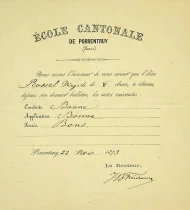 ÉCOLE CANTONALE
DE PORRENTRUY
(Berne)
Nous avons l'honneur de vous annoncer que l'élève
Rossel Virgile de V classe, a obtenu,
depuis son dernier bulletin, les notes suivantes:
Conduite Bonne
Application Bonne
Progrès Bons
Porrentruy, 22 Nov. 1873
Le Recteur,